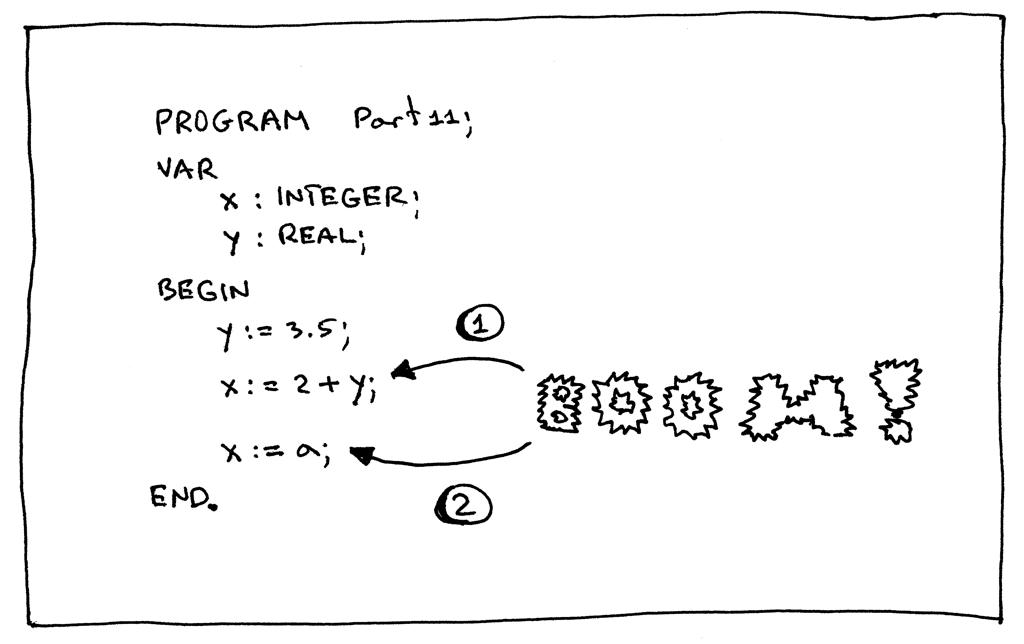 PROGRAM Part11;
VAR
x : INTEGER;
y : REAL;
BEGIN
y := 3.5;
x := 2 + y;
x := a;
END.
1
BOOM!
2